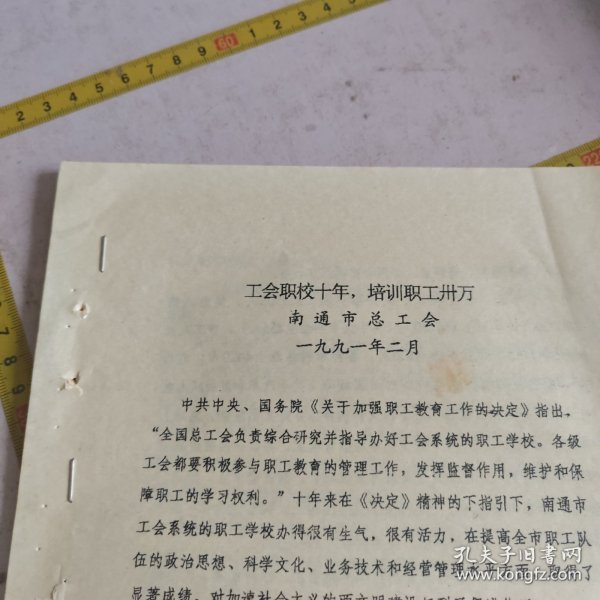 工会职校十年，培训职工卅万
南通市总工会
一九九一年二月
中共中央、国务院《关于加强职工教育工作的决定》指出，
“全国总工会负责综合研究并指导办好工会系统的职工学校。各级
工会都要积极参与职工教育的管理工作，发挥监督作用，维护和保
障职工的学习权利。”十年来在《决定》精神的下指引下，南通市
工会系统的职工学校办得很有生气，很有活力，在提高全市职工队
伍的政治思想、科学文化、业务技术和经营管理水平方面，取得了
显著成绩，对加速社会主义的两文明建设
孔夫子旧书网
www.kongfz.com